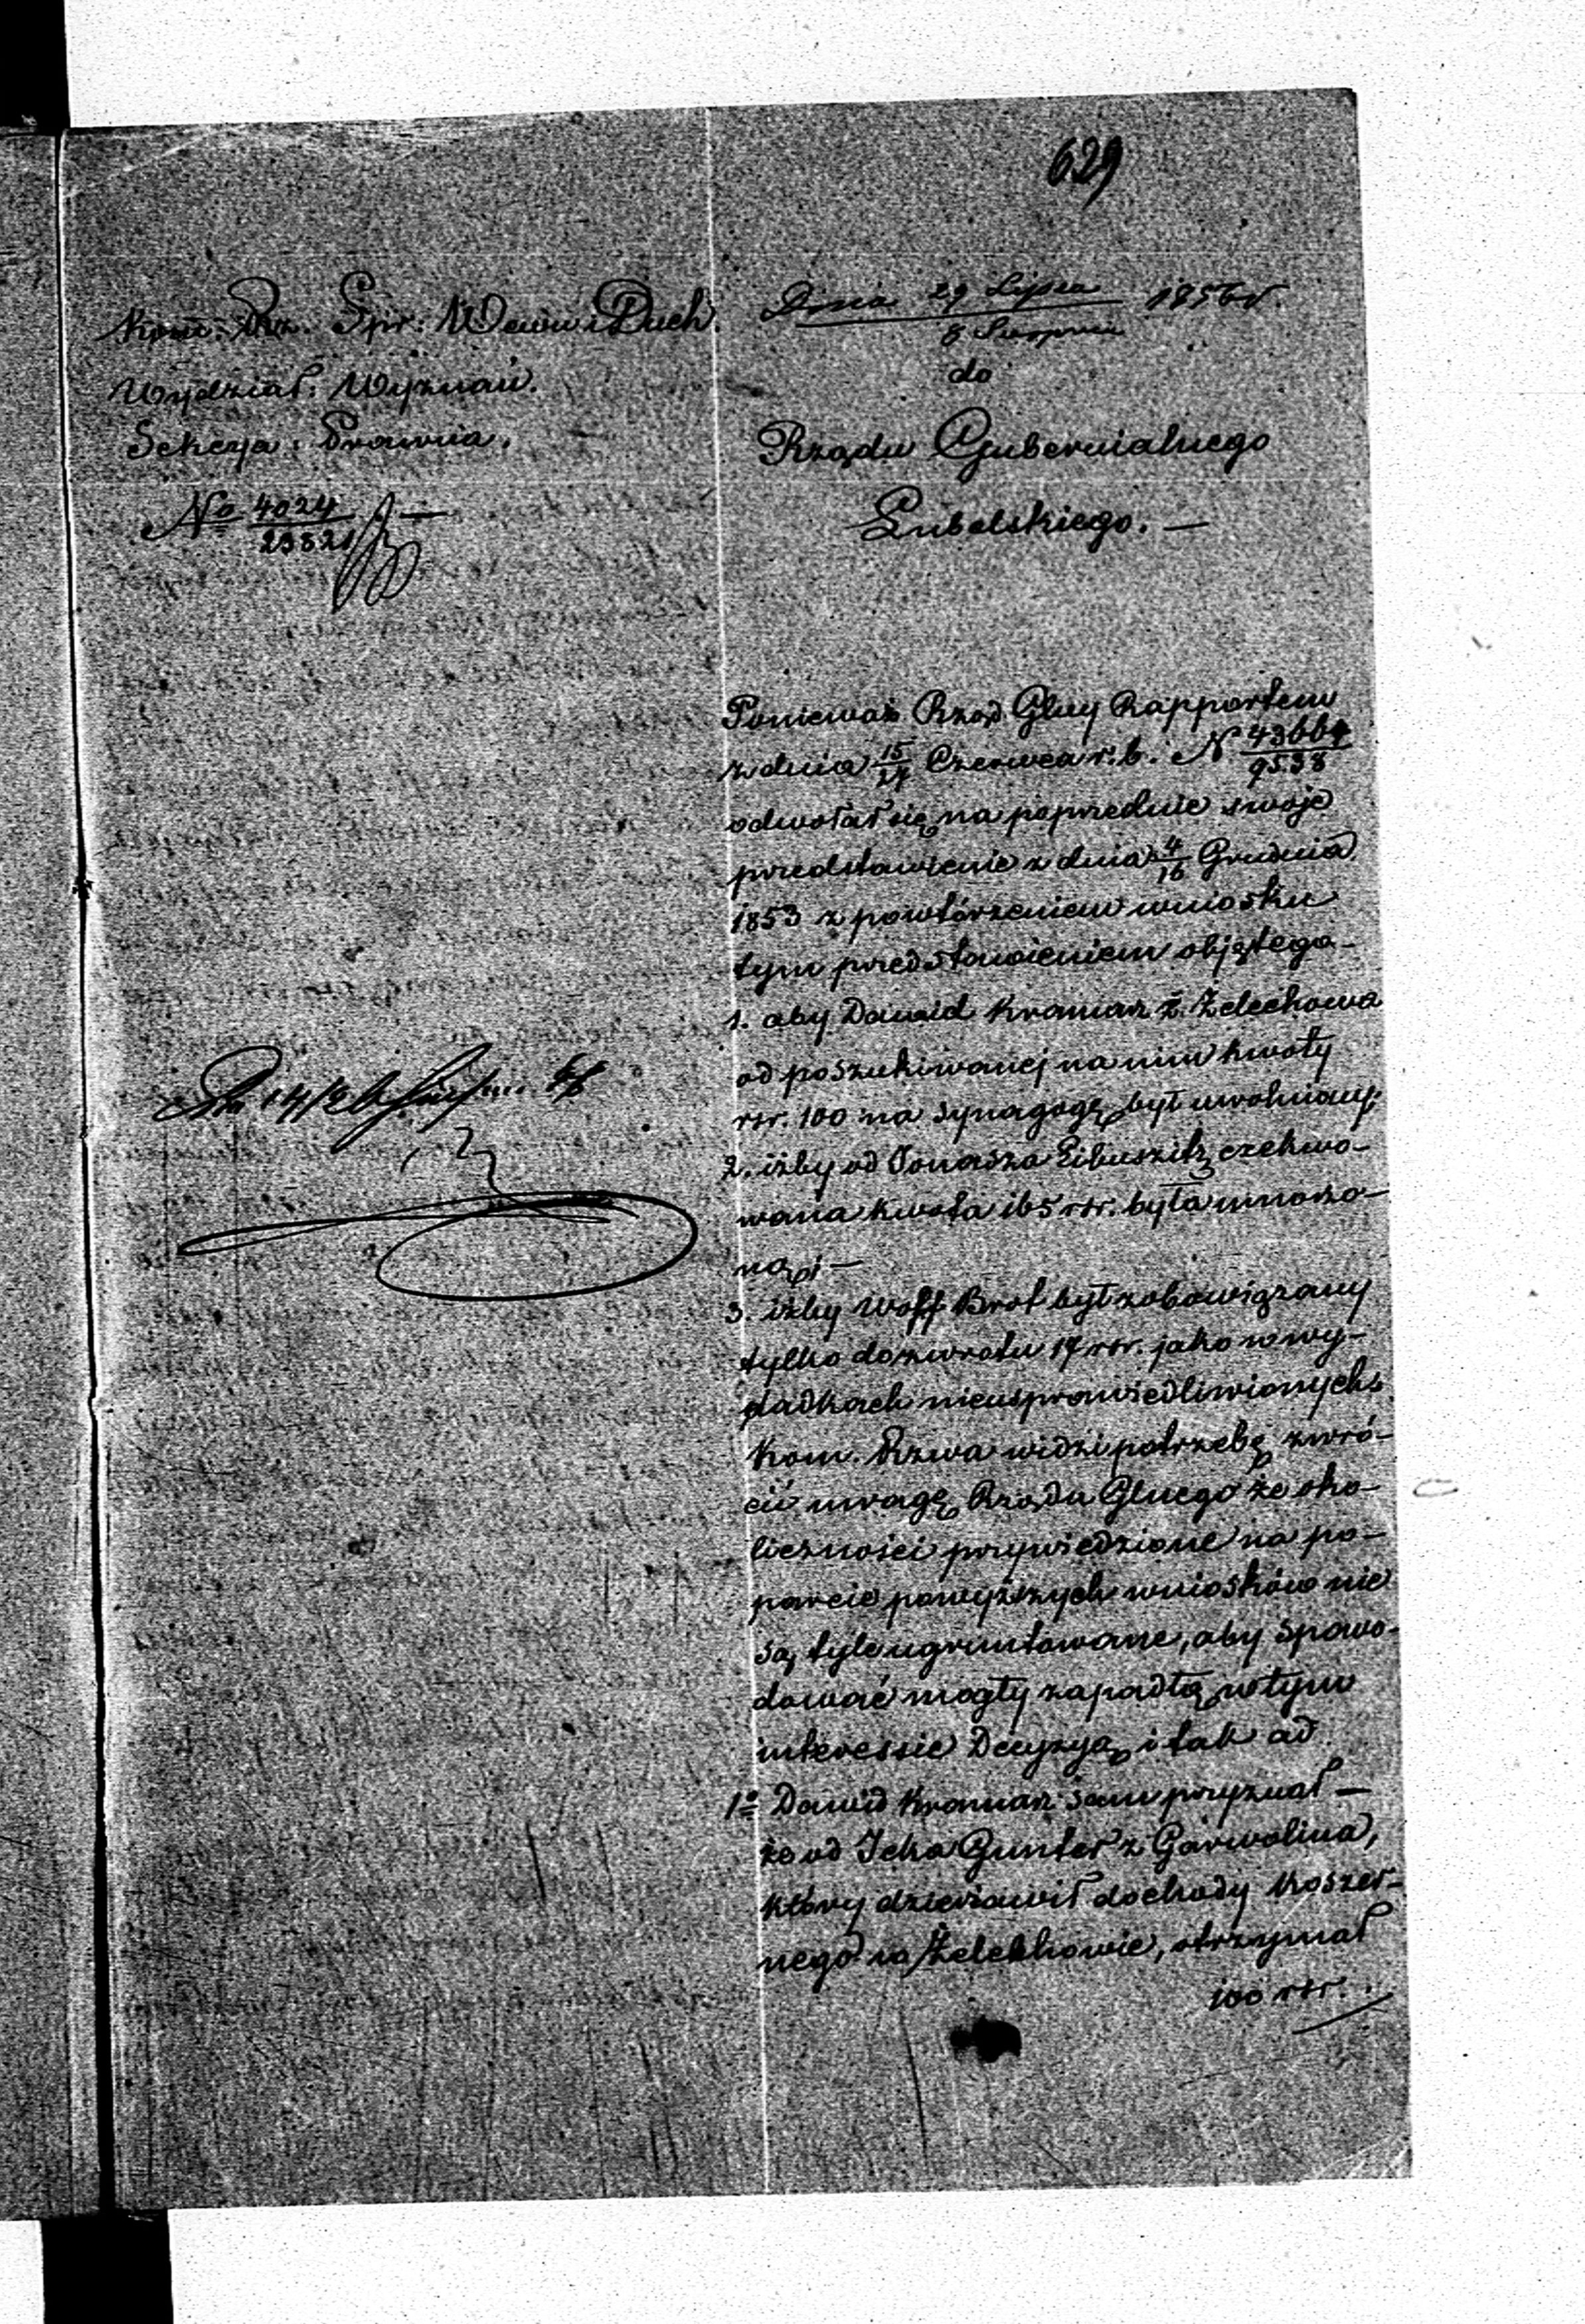 629
Kom: Rz. Spr: Wewn i Duch.
Wydział: Wyznań.
Sekcya: Prawna.
No 4024
23821
Dnia 29 Lipca 1856 r.
8 Sierpnia
do
Rządu Gubernialnego
Lubelskiego. —
Ponieważ Rząd Glny Rapportem
z dnia 15/27 Czerwca r. b. N 43664/9538
odwołał się na poprzednie swoje
przedstawienie z dnia 4/16 Grudnia
1853 z powtórzeniem wniosku
tym przedstawieniem objętego —
1. aby Dawid Kramarz z Żelechowa
od poszukiwanej na nim kwoty
rsr. 100 na synagogę był uwolniony;
2. iżby od Jonasza Eibuszitz czekwo-
wana kwota 165 rsr. była umorzo-
ną; i —
3. iżby Wolff Brot był zobowiązany
tylko do zwrotu 17 rsr. jako w wy-
datkach nieusprawiedliwionych
Kom. Rzwa widzi potrzebę zwró-
cić uwagę Rządu Glnego że oko-
liczności przywiedzione na po-
parcie powyższych wniosków nie
są tyle ugruntowane, aby spowo-
dować mogły zapadłą w tym
interessie Decyzyą, i tak ad
1o Dawid Kramarz sam przyznał —
że od Icka Gunter z Garwolina,
który dzierżawił dochody koszer-
nego w Żelekhowie, otrzymał
100 rsr.